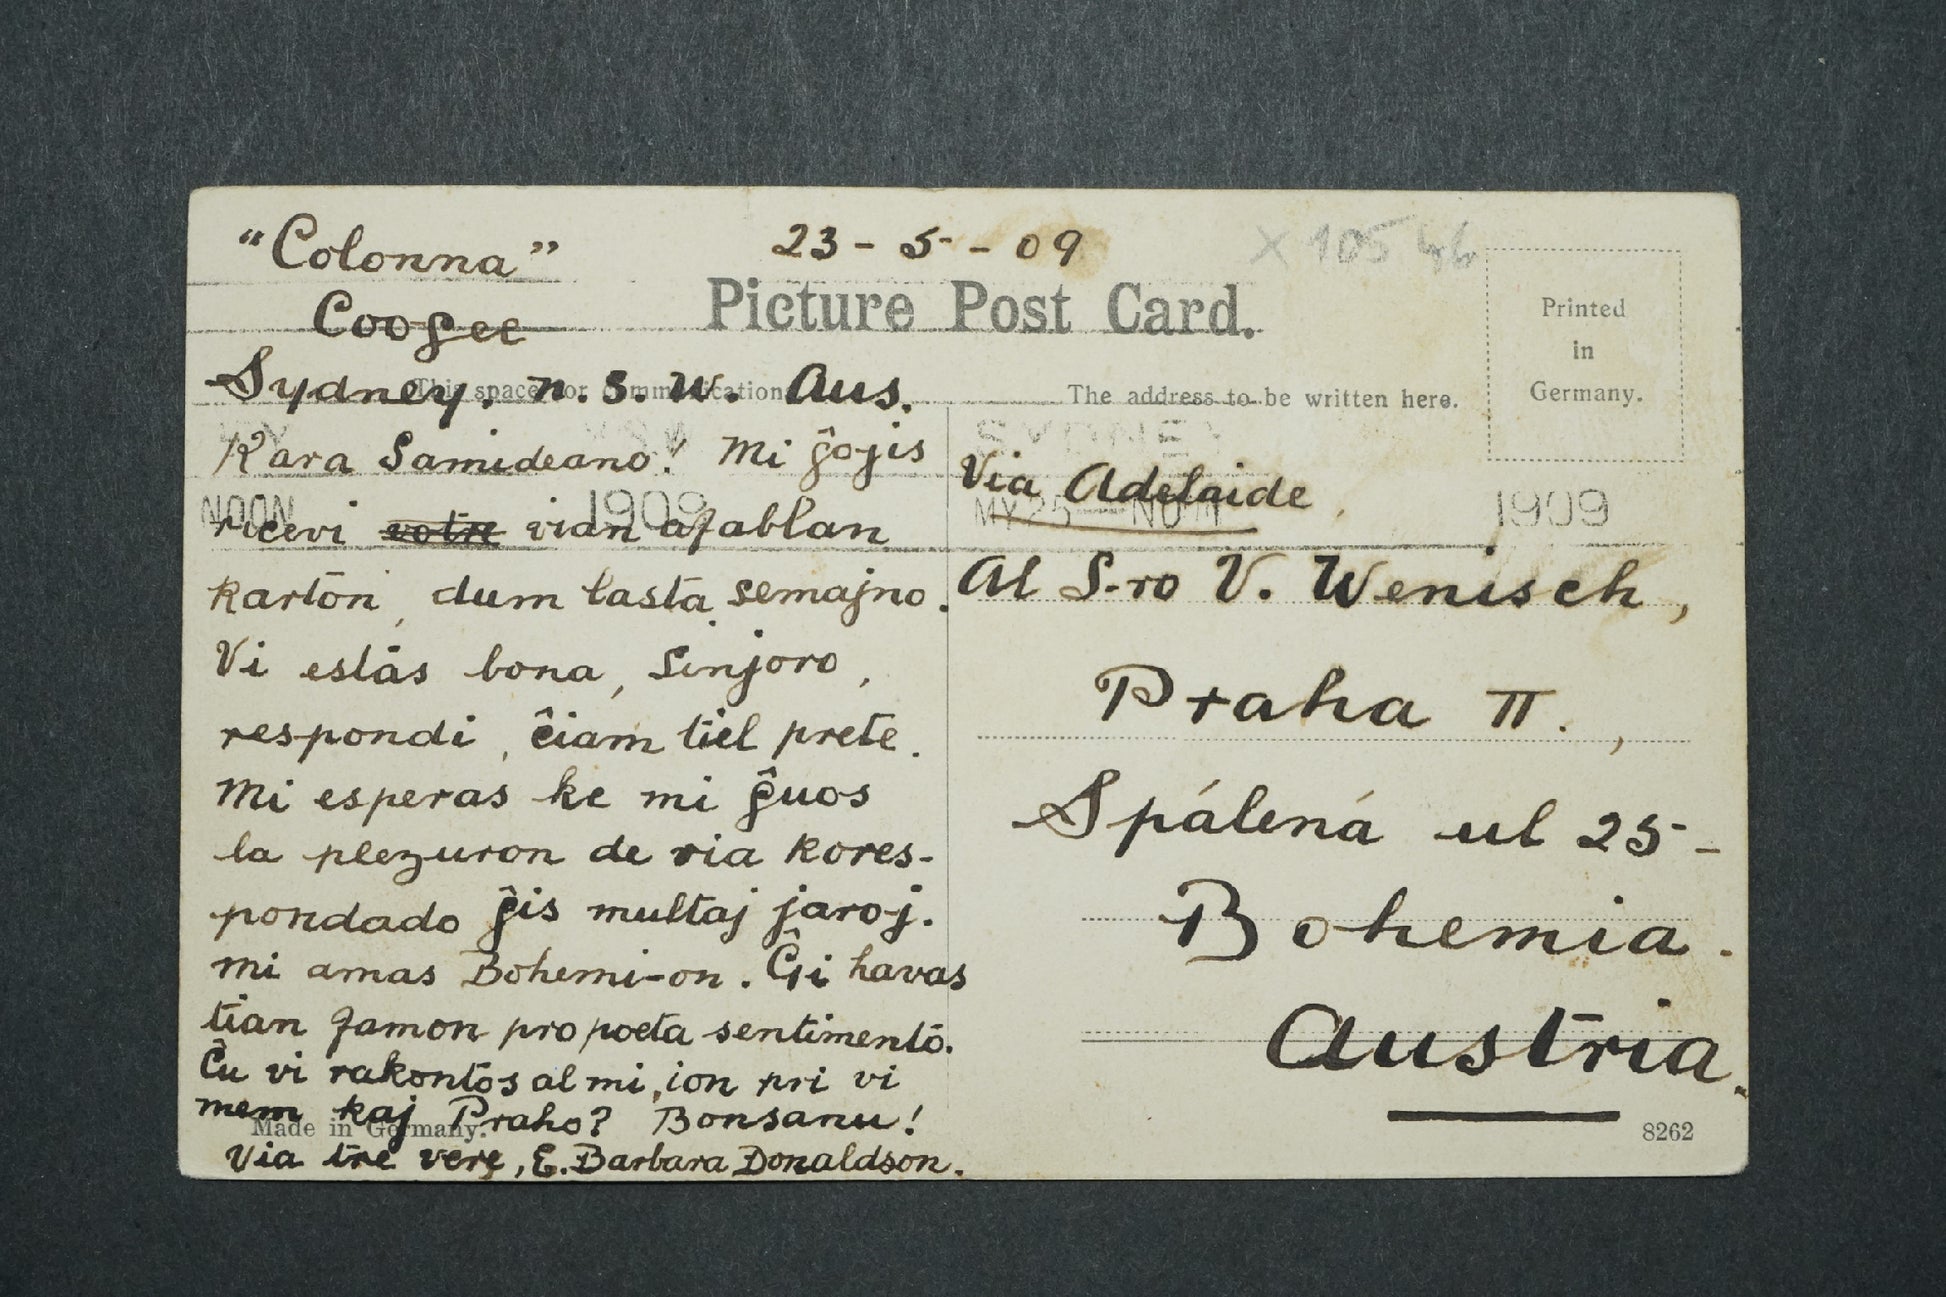 "Colonna"
23-5-09
X 105
Coogee
Picture Post Card.
Printed
in
Germany.
Sydney. N.S.W. Aus.
This space for communication
The address to be written here.
Kara Samideano! Mi ĝojis
SYDNEY
Via Adelaide
NOON 1909
MY 25 NOON 1909
ricevi votre vian afablan
karton, dum lasta semajno.
Al S-ro V. Wenisch,
Vi estas bona, Sinjoro,
respondi, ĉiam tiel prete.
Praha II.,
Mi esperas ke mi ĝuos
la plezuron de via kores-
Spálená ul 25-
pondado ĝis multaj jaroj.
Bohemia.
mi amas Bohemi-on. Ĝi havas
tian famon pro poeta sentimento.
Austria.
Ĉu vi rakontos al mi, ion pri vi
mem kaj Praho? Bonsanu!
Made in Germany.
8262
Via tre vere, E. Barbara Donaldson.